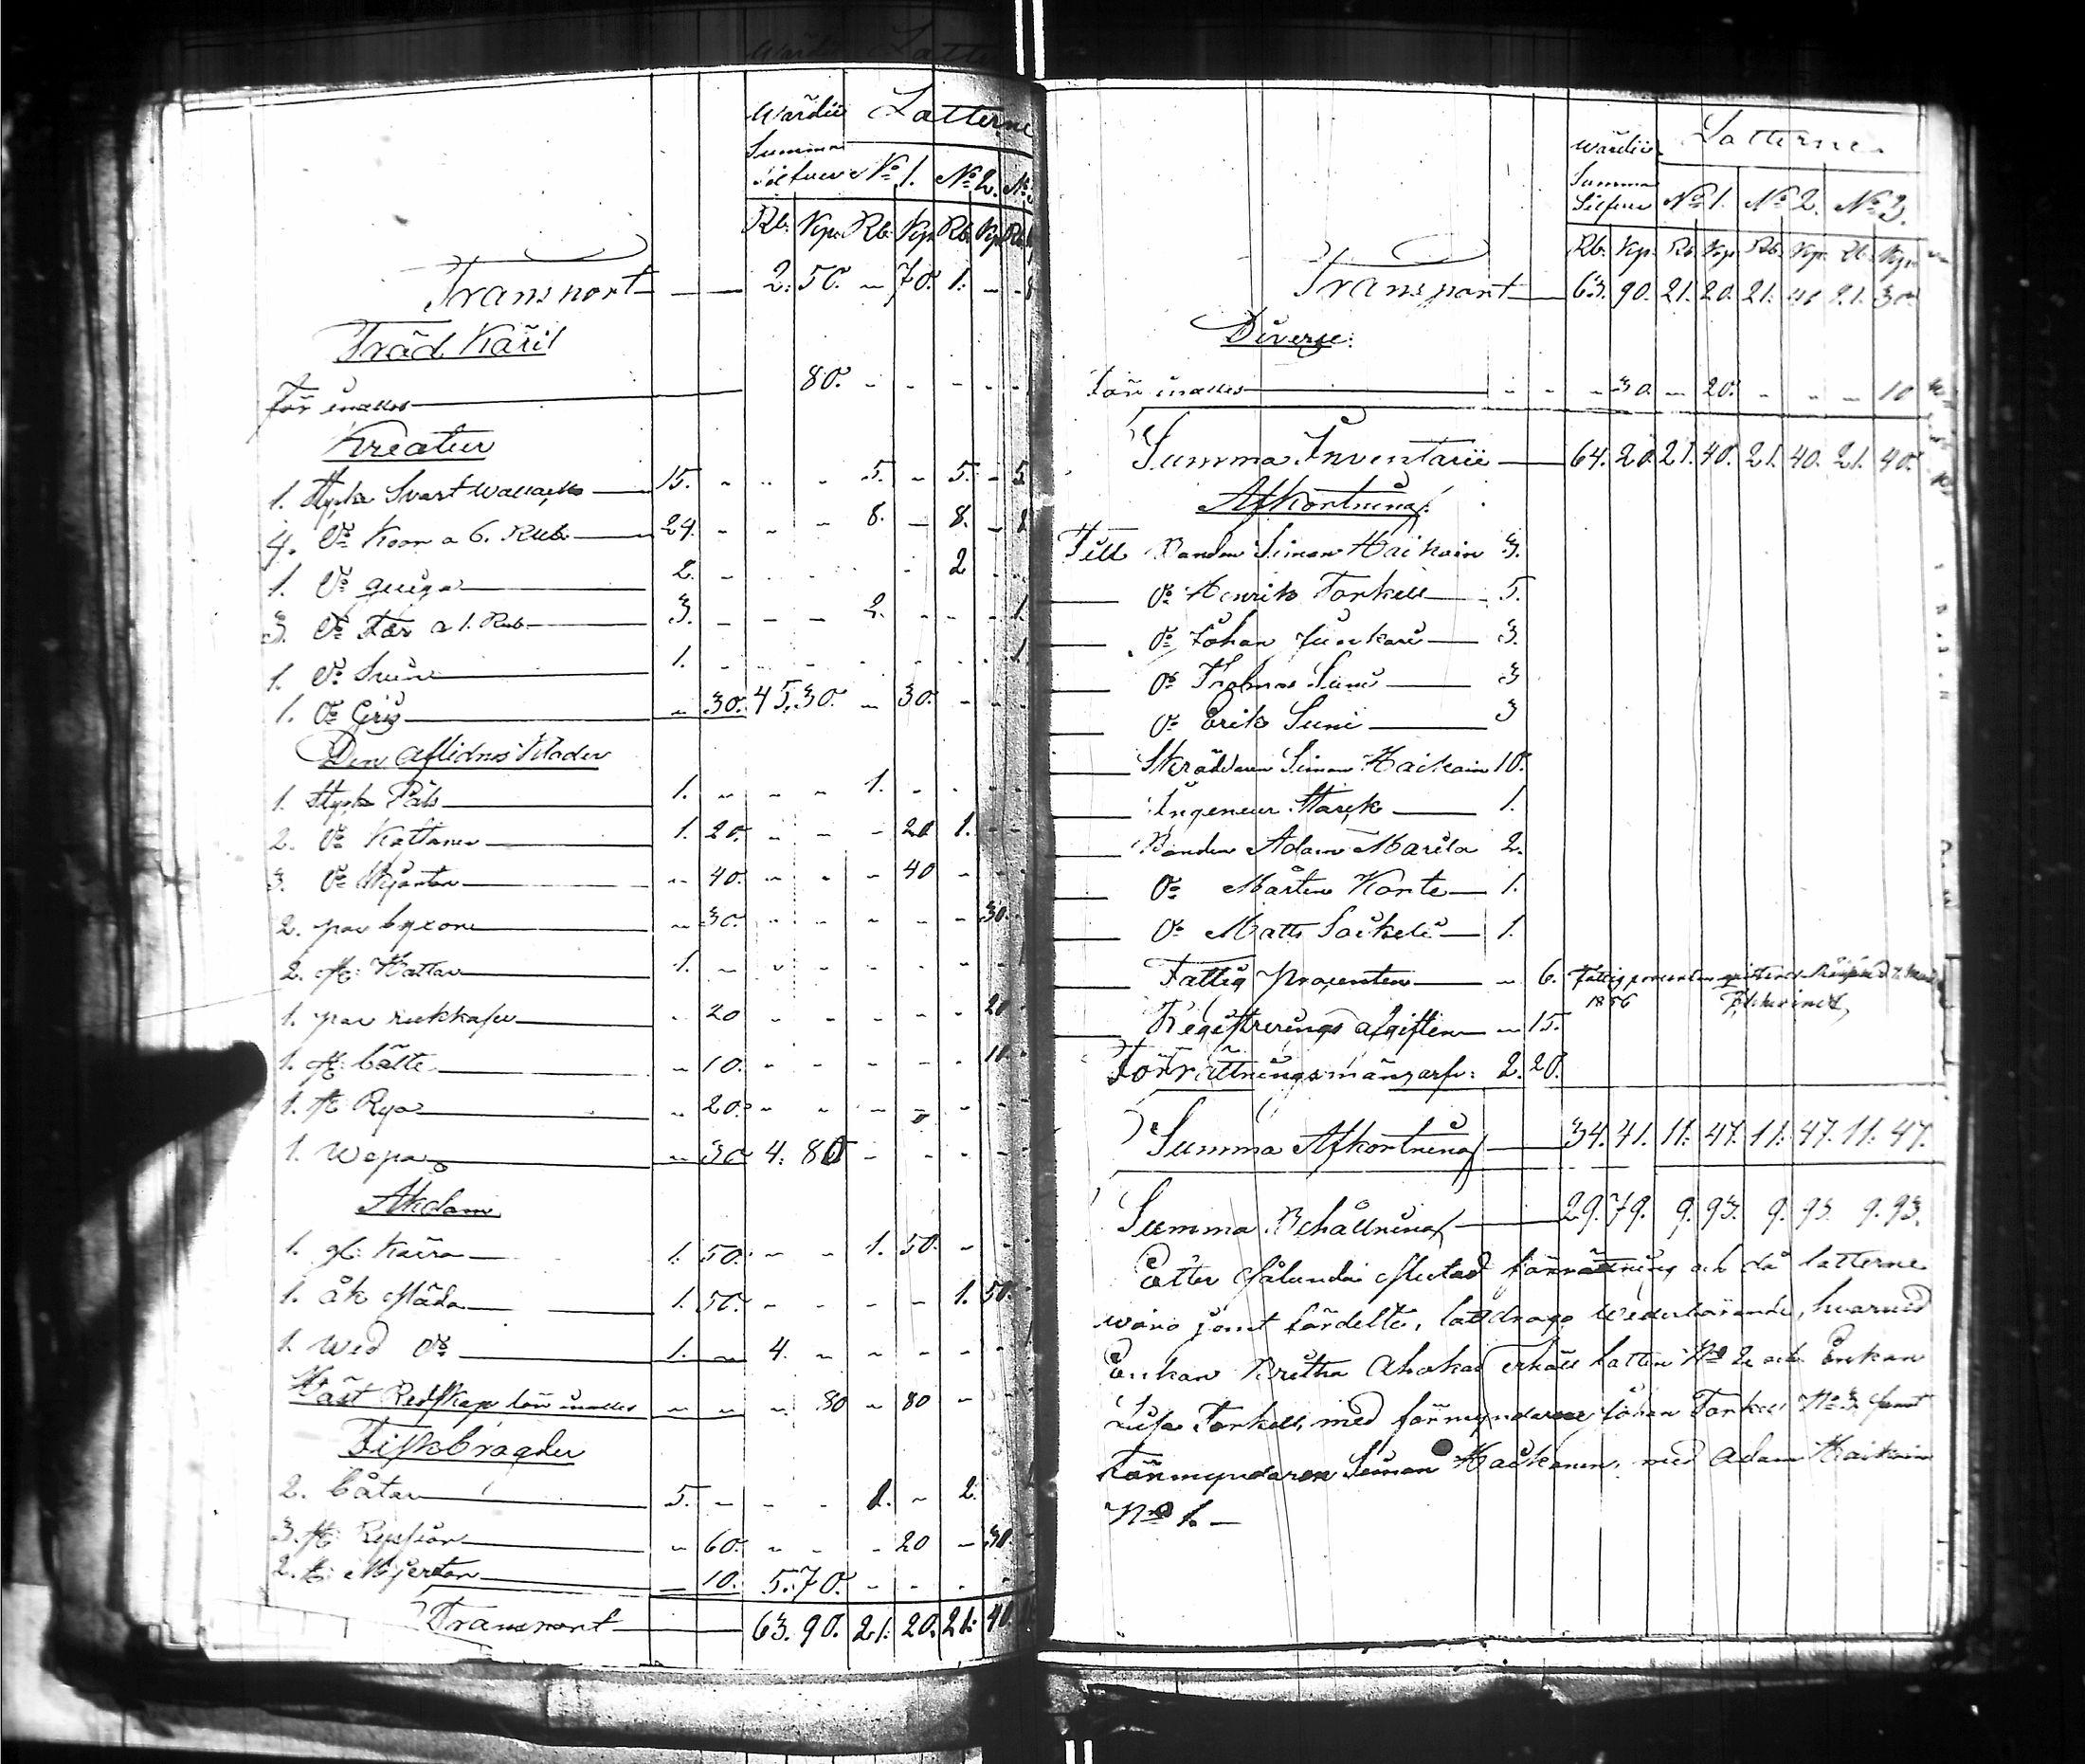 Wärdie Latterne
Summa Silfver No 1. No 2. No
Rb. Kp. Rb. Kp. Rb. Kp. Rb.
Transport 2. 50. - 70. 1. - -
Träd Käril
för inalles 80. - - - -
Kreatur
1. Styck Svart Wallack 15. - - - 5. - 5. - 5
4. Do Koor a 6. Rub. 24. - - - 8. - 8. - 8
1. Do quiga 2. - - - - - 2 - -
3. Do Får a 1. Rub. 3. - - - 2. - - - 1
1. Do Svin 1. - - - - - - - 1
1. Do Gris - 30. 45. 30. - 30. - -
Den Aflidnes Kläder
1. Styck Päls 1. - - - 1. - - -
2. Do Kaftaner 1. 20. - - - 20 1. -
3. Do Skjortor - 40. - - - 40 - -
2. par byxor - 30. - - - - - 30.
2. st: Hattar 1. - - - - - - -
1. par rukkaser - 20 - - - - - 20
1. st: bälte - 10. - - - - - 10.
1. st: Rya - 20. - - - - - -
1. Wepa - 30 4. 80 - - - -
Åkdom
1. st: Kärra 1. 50. - - 1. 50. - -
1. åk släda 1. 50. - - - - 1. 50.
1. Wed Do 1. - 4. - - - - -
Häst Redskap för inalles - - - 80 - 80 -
Fiskbragder
2. båtar 5. - - - 1. - 2.
3. st: Ryssior - 60. - - - 20 - 30.
2. st: Mjerdor - 10. 5. 70. - - - -
Transport 63. 90. 21. 20. 21. 40.
Wärdie Latterne
Summa Silfver No 1. No 2. No 3.
Rb. Kp. Rb. Kp. Rb. Kp. Rb. Kp.
Transport 63. 90. 21. 20. 21. 40 21. 30
Diverse:
för inalles - - - 30. - 20. - - - 10
Summa Inventarii 64. 20. 21. 40. 21. 40. 21. 40.
Afkortning:
Till Bonden Simon Haikain 3.
Do Henrik Torkell 5.
Do Johan Junkari 3.
Do Thomas Suni 3
Do Erik Suni 3
Skräddaren Simon Haikain 10.
Ingeneur Starck 1.
Bonden Adam Marila 2.
Do Mårten Korte 1.
Do Matts Soikeli 1.
Fattig procenten - 6. Fattig procenten
1856
Registrerings afgiften - 15.
Förrättningsmäns arf: 2. 20.
Summa Afkortning 34. 41. 11. 47. 11. 47. 11. 47.
Summa Behållning 29. 79. 9. 93. 9. 93. 9. 93.
Efter sålunda slutad förrättning och då latterne
woro jemt fördelte, lattdrogo wederbörande, hvarvid
Enkan Britha Ahokas erhöll latten No 2 och Enkan
Lisa Torkell, med förmyndaren Johan Torkell No 3, samt
Förmyndaren Simon Haikanen, med Adam Haikain
No 1. -